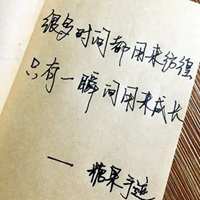 很多时间都用来彷徨
只有一瞬间用来成长
— 糖果手迹